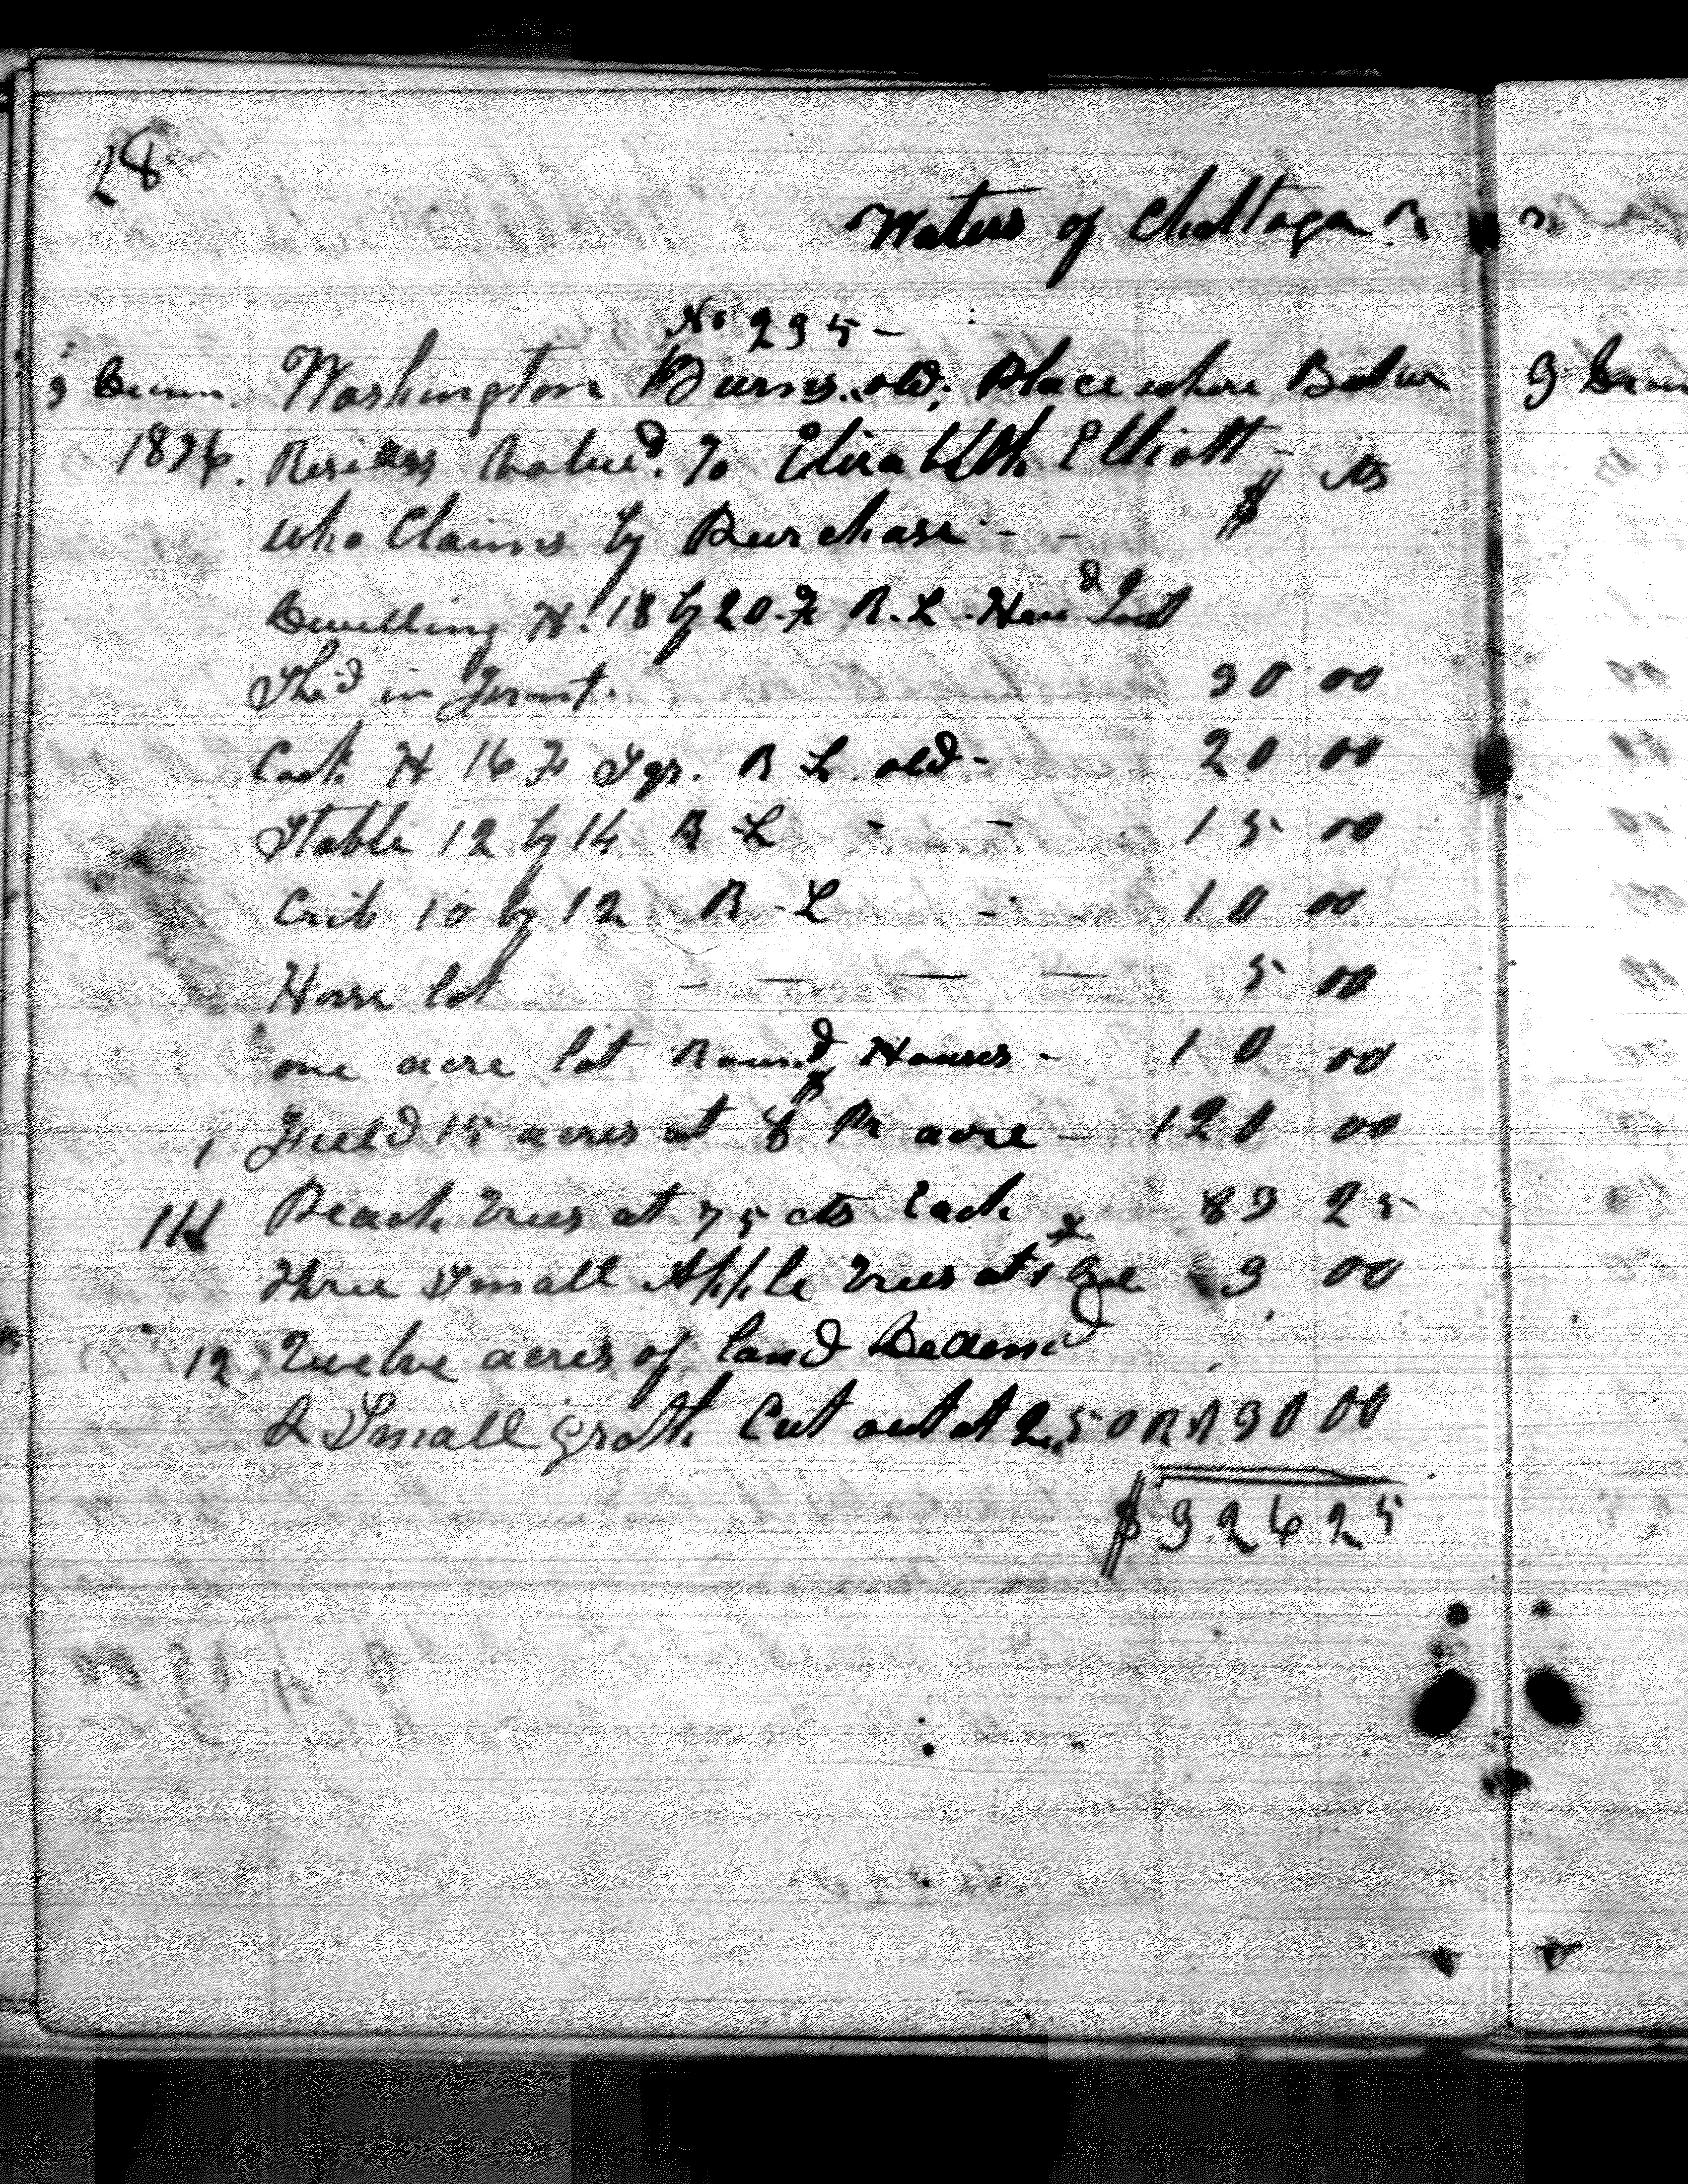 28
Waters of Chattooga R
No 295 -
9 Decem. Washington Burns. old. Place where Baker
1836. Resides Valued. To Elizabeth Elliott -
$ cts
who Claims by Purchase - -
Dwelling H. 18 by 20. F R. L. Hewd Inst
Shed in Front. 30 00
Cook H 16 F Sqr. R L old - 20 00
Stable 12 by 14 R L - - 15 00
Crib 10 by 12 R - L - - 10 00
Horse lot - - - - 5 00
one acre lot Round Houses - 10 00
1 Field 15 acres at $8 Pr acre - 120 00
Peach Trees at 75 cts Each 83 25
Three Small Apple Trees at 3 00
12 Twelve acres of land Deadend
& Small Groth Cut out at 2,50 P A 30 00
$ 326 25